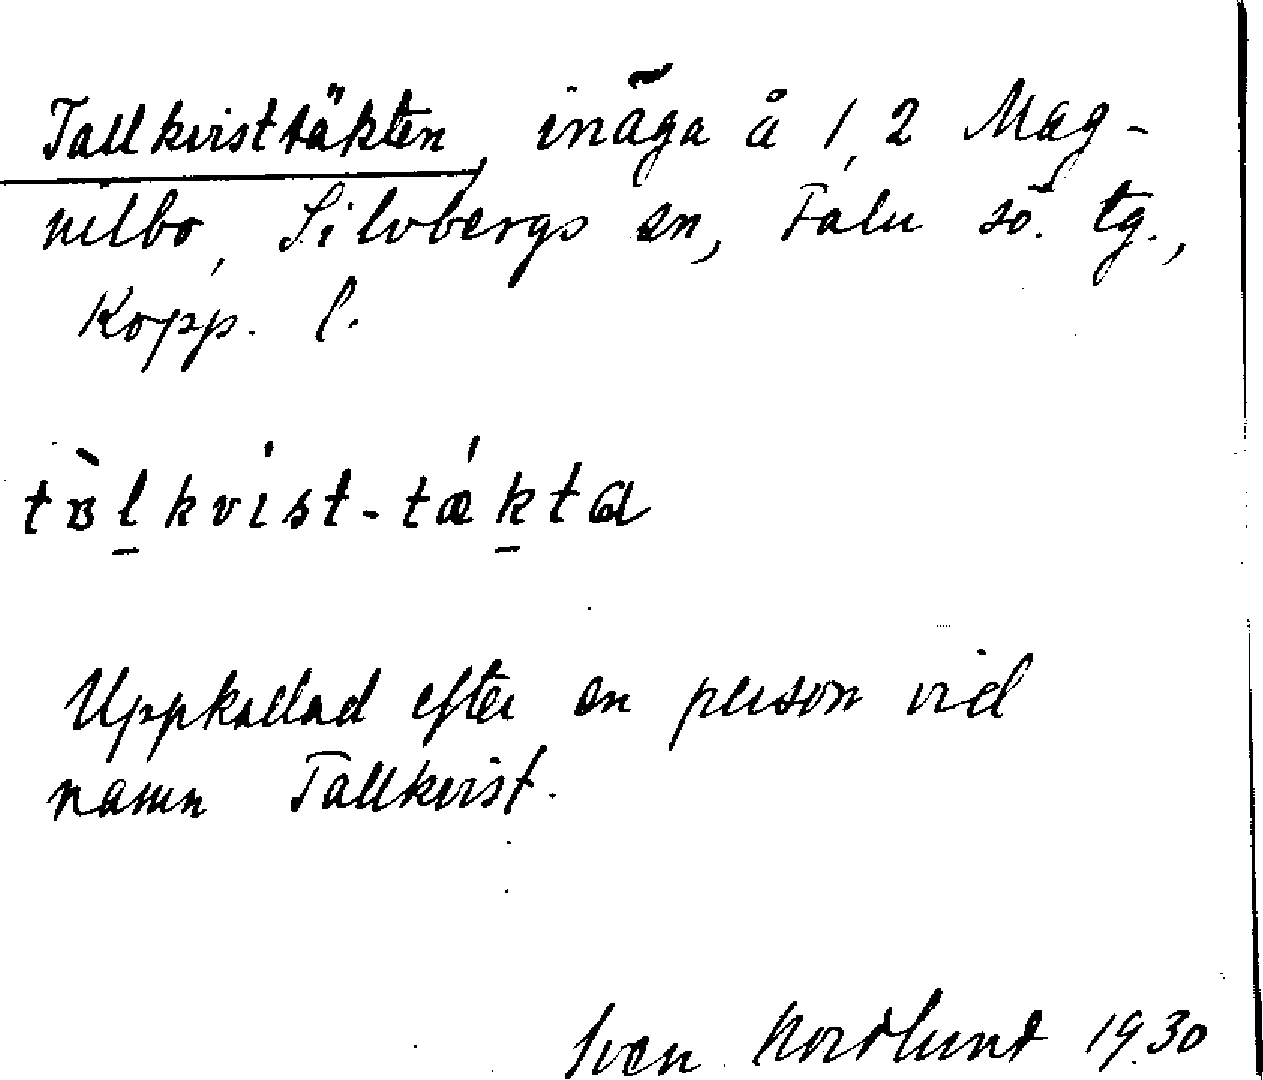 Tallkvisttäkten, inäga å 1, 2 Mag-
nilbo, Silvbergs sn, Falu sö. tg.,
Kopp. l.
tɞ̀l̠kvíst-tǽk̠ta
Uppkallad efter en person vid
namn Tallkvist.
Sven Nordlund 1930